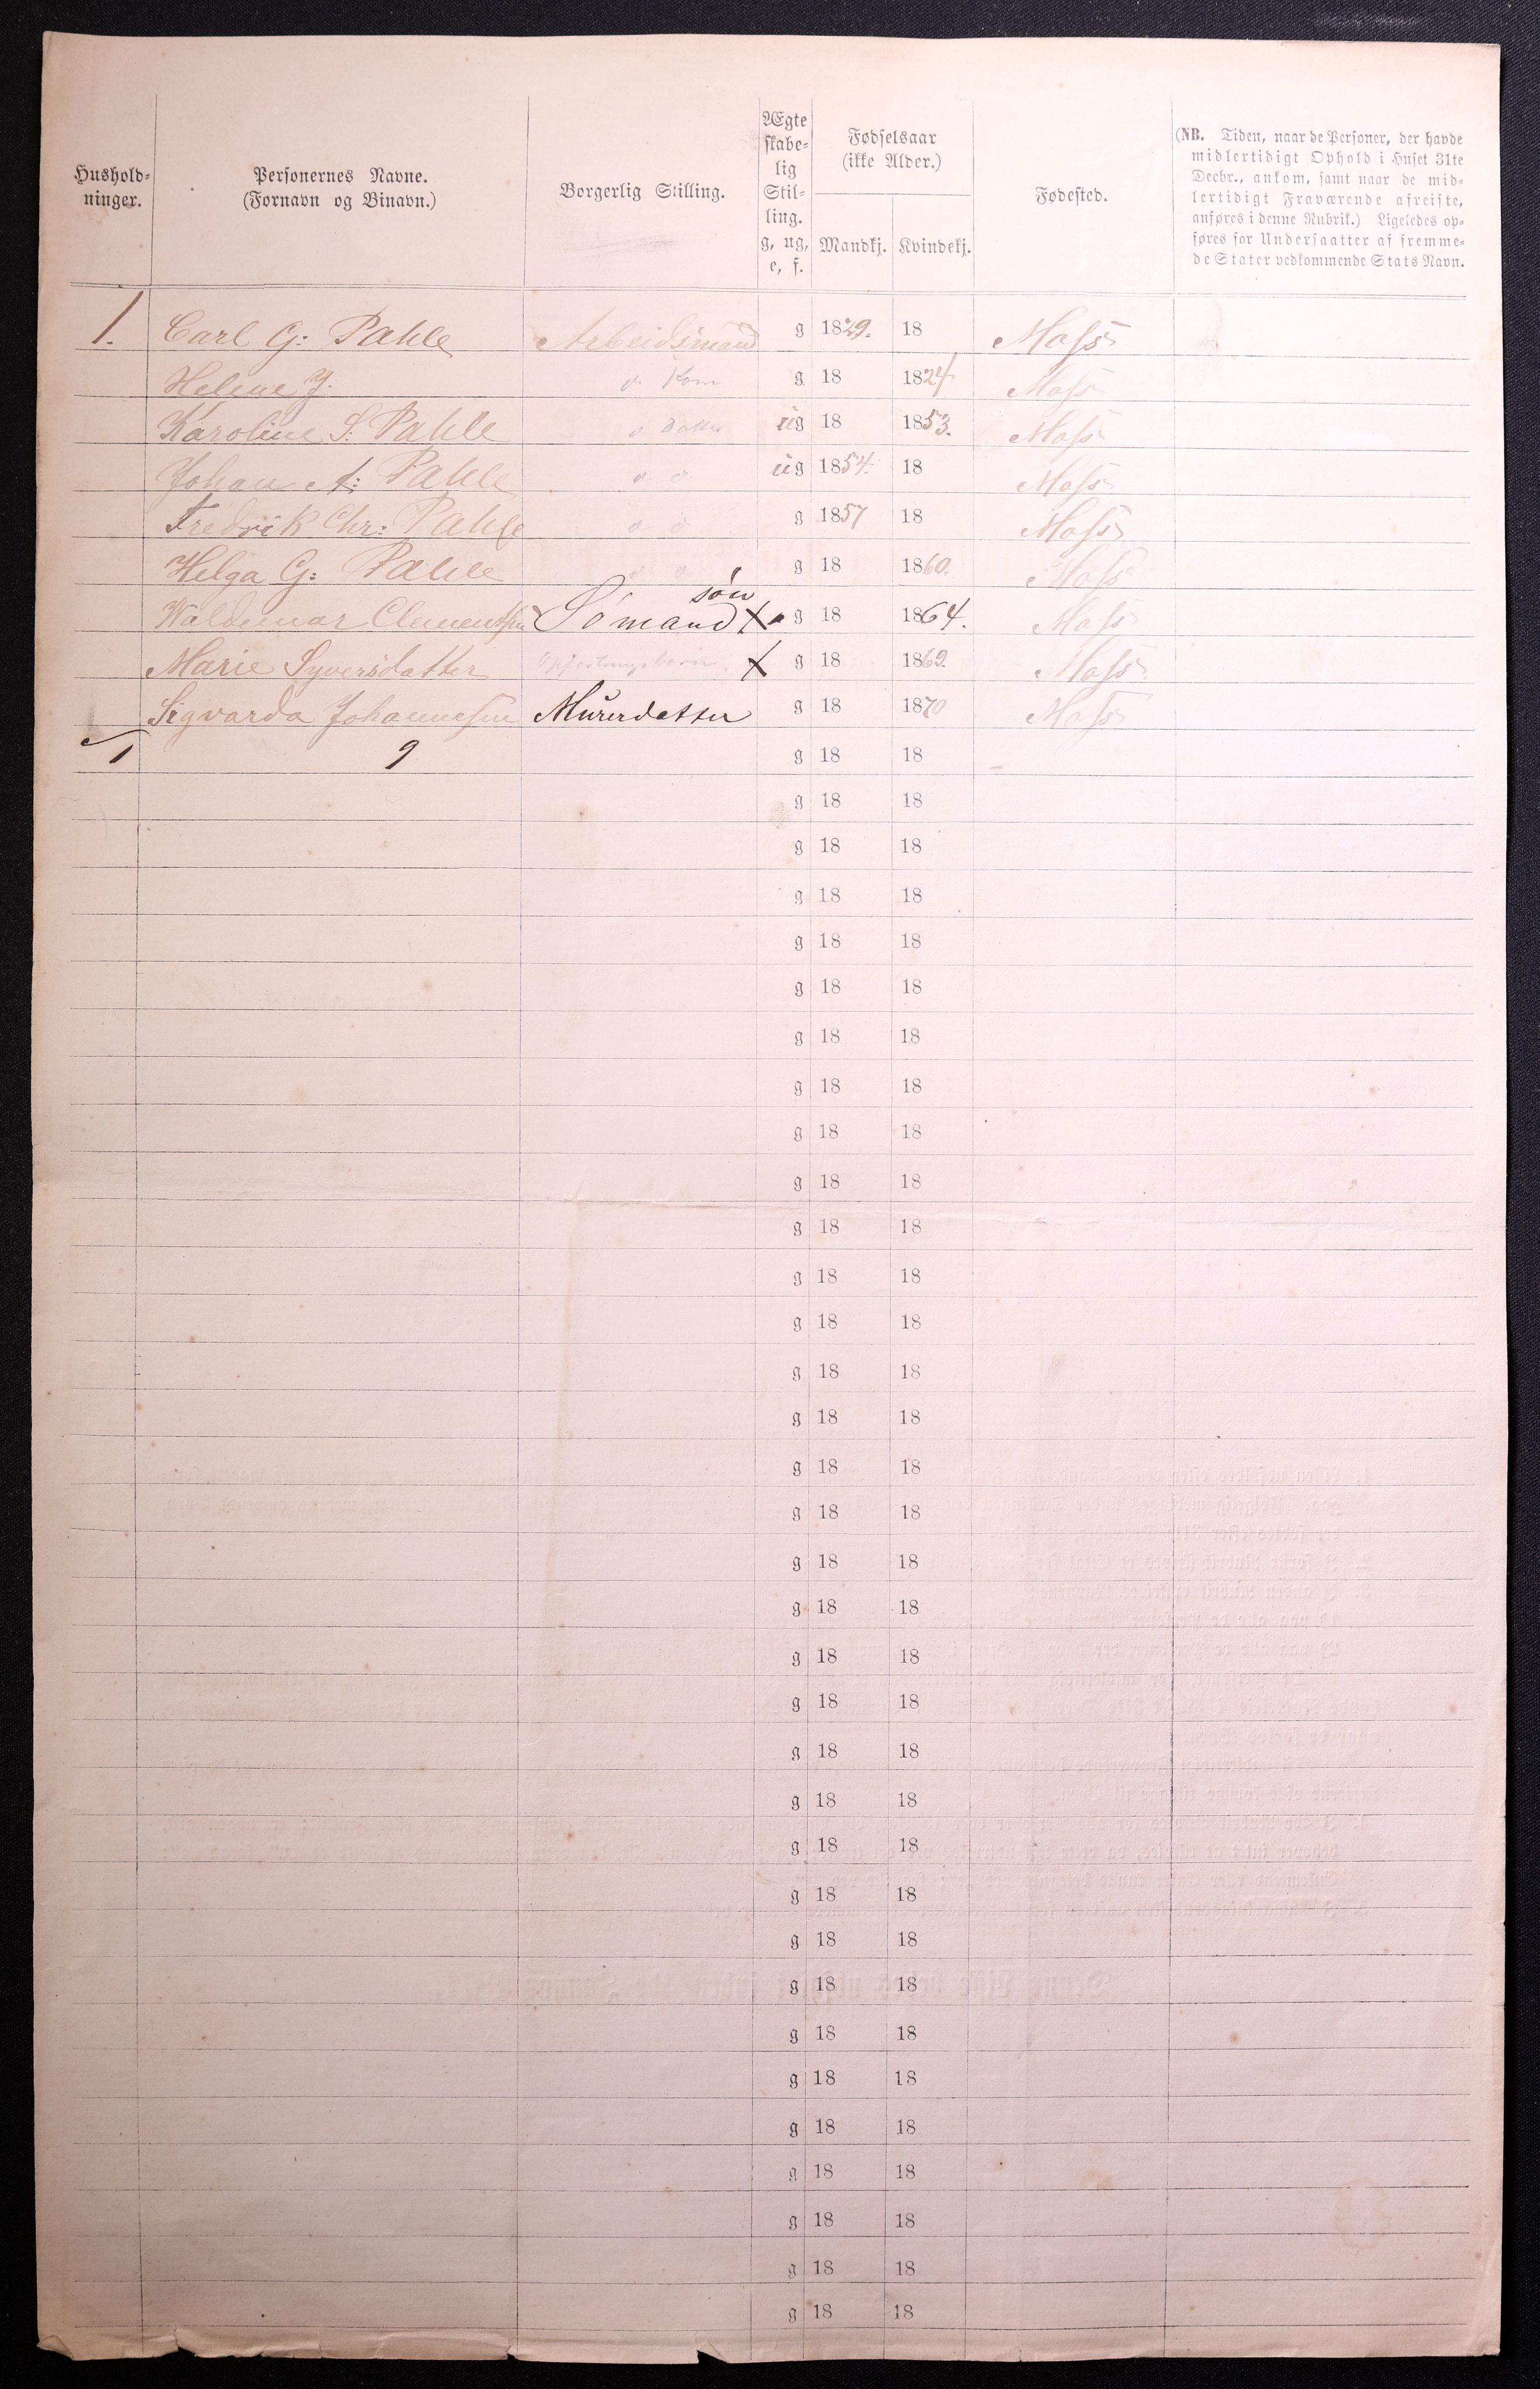 Hushold-
ninger.
Personernes Navne.
(Fornavn og Binavn.)
Borgerlig Stilling.
Ægte
skabe-
lig
Stil-
ling.
g, ug,
e, f.
Fødselsaar
(ikke Alder.)
Mandkj. Kvindekj.
Fødested.
(NB. Tiden, naar de Personer, der havde
midlertidigt Ophold i Huset 31te
Decbr., ankom, samt naar de mid-
lertidigt Fraværende afreiste,
anføres i denne Rubrik.) Ligeledes op-
føres for Undersaatter af fremme-
de Stater vedkommende Stats Navn.
1. Carl G: Pahle Arbeidsmand g 1829. 18 Moss
Helene J. d. Kone g 18 1824 Moss
Karoline S: Pahle d Datter ug 18 1853. Moss
Johan A: Pahle d d ug 1854. 18 Moss
Fredrik Chr: Pahle d d g 1857 18 Moss
Helga G: Pahle d d g 18 1860. Moss
søn
Waldemar Clementsen Sömand g 18 1864. Moss
Marie Syversdatter g 18 1869. Moss
Sigvarda Johannesen Murerdatter g 18 1870 Moss
1 9 g 18 18
g 18 18
g 18 18
g 18 18
g 18 18
g 18 18
g 18 18
g 18 18
g 18 18
g 18 18
g 18 18
g 18 18
g 18 18
g 18 18
g 18 18
g 18 18
g 18 18
g 18 18
g 18 18
g 18 18
g 18 18
g 18 18
g 18 18
g 18 18
g 18 18
g 18 18
g 18 18
g 18 18
g 18 18
g 18 18
g 18 18
g 18 18
g 18 18
g 18 18